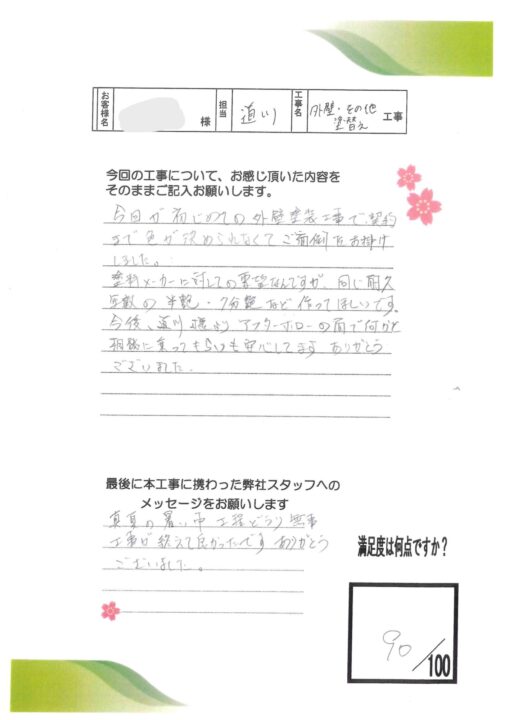 お客様名 様 担当 道川 工事名 外壁・その他 塗替え 工事
今回の工事について、お感じ頂いた内容を
そのままご記入お願いします。
今回が初じめての外壁塗装工事で、契約
まで色が決められなくてご面倒をお掛け
しました。
塗料メーカーに対しての要望なんですが、同じ耐久
年数の半艶・7分艶など作ってほしいです。
今後、道川様より アフターホローの面で何かと
相談に乗ってもらい 安心してます ありがとう
ございました。
最後に本工事に携わった弊社スタッフへの
メッセージをお願いします
真夏の暑い中 工程どうり 無事
工事が終えて良かったです ありがとう
ございました。
満足度は何点ですか?
90/100